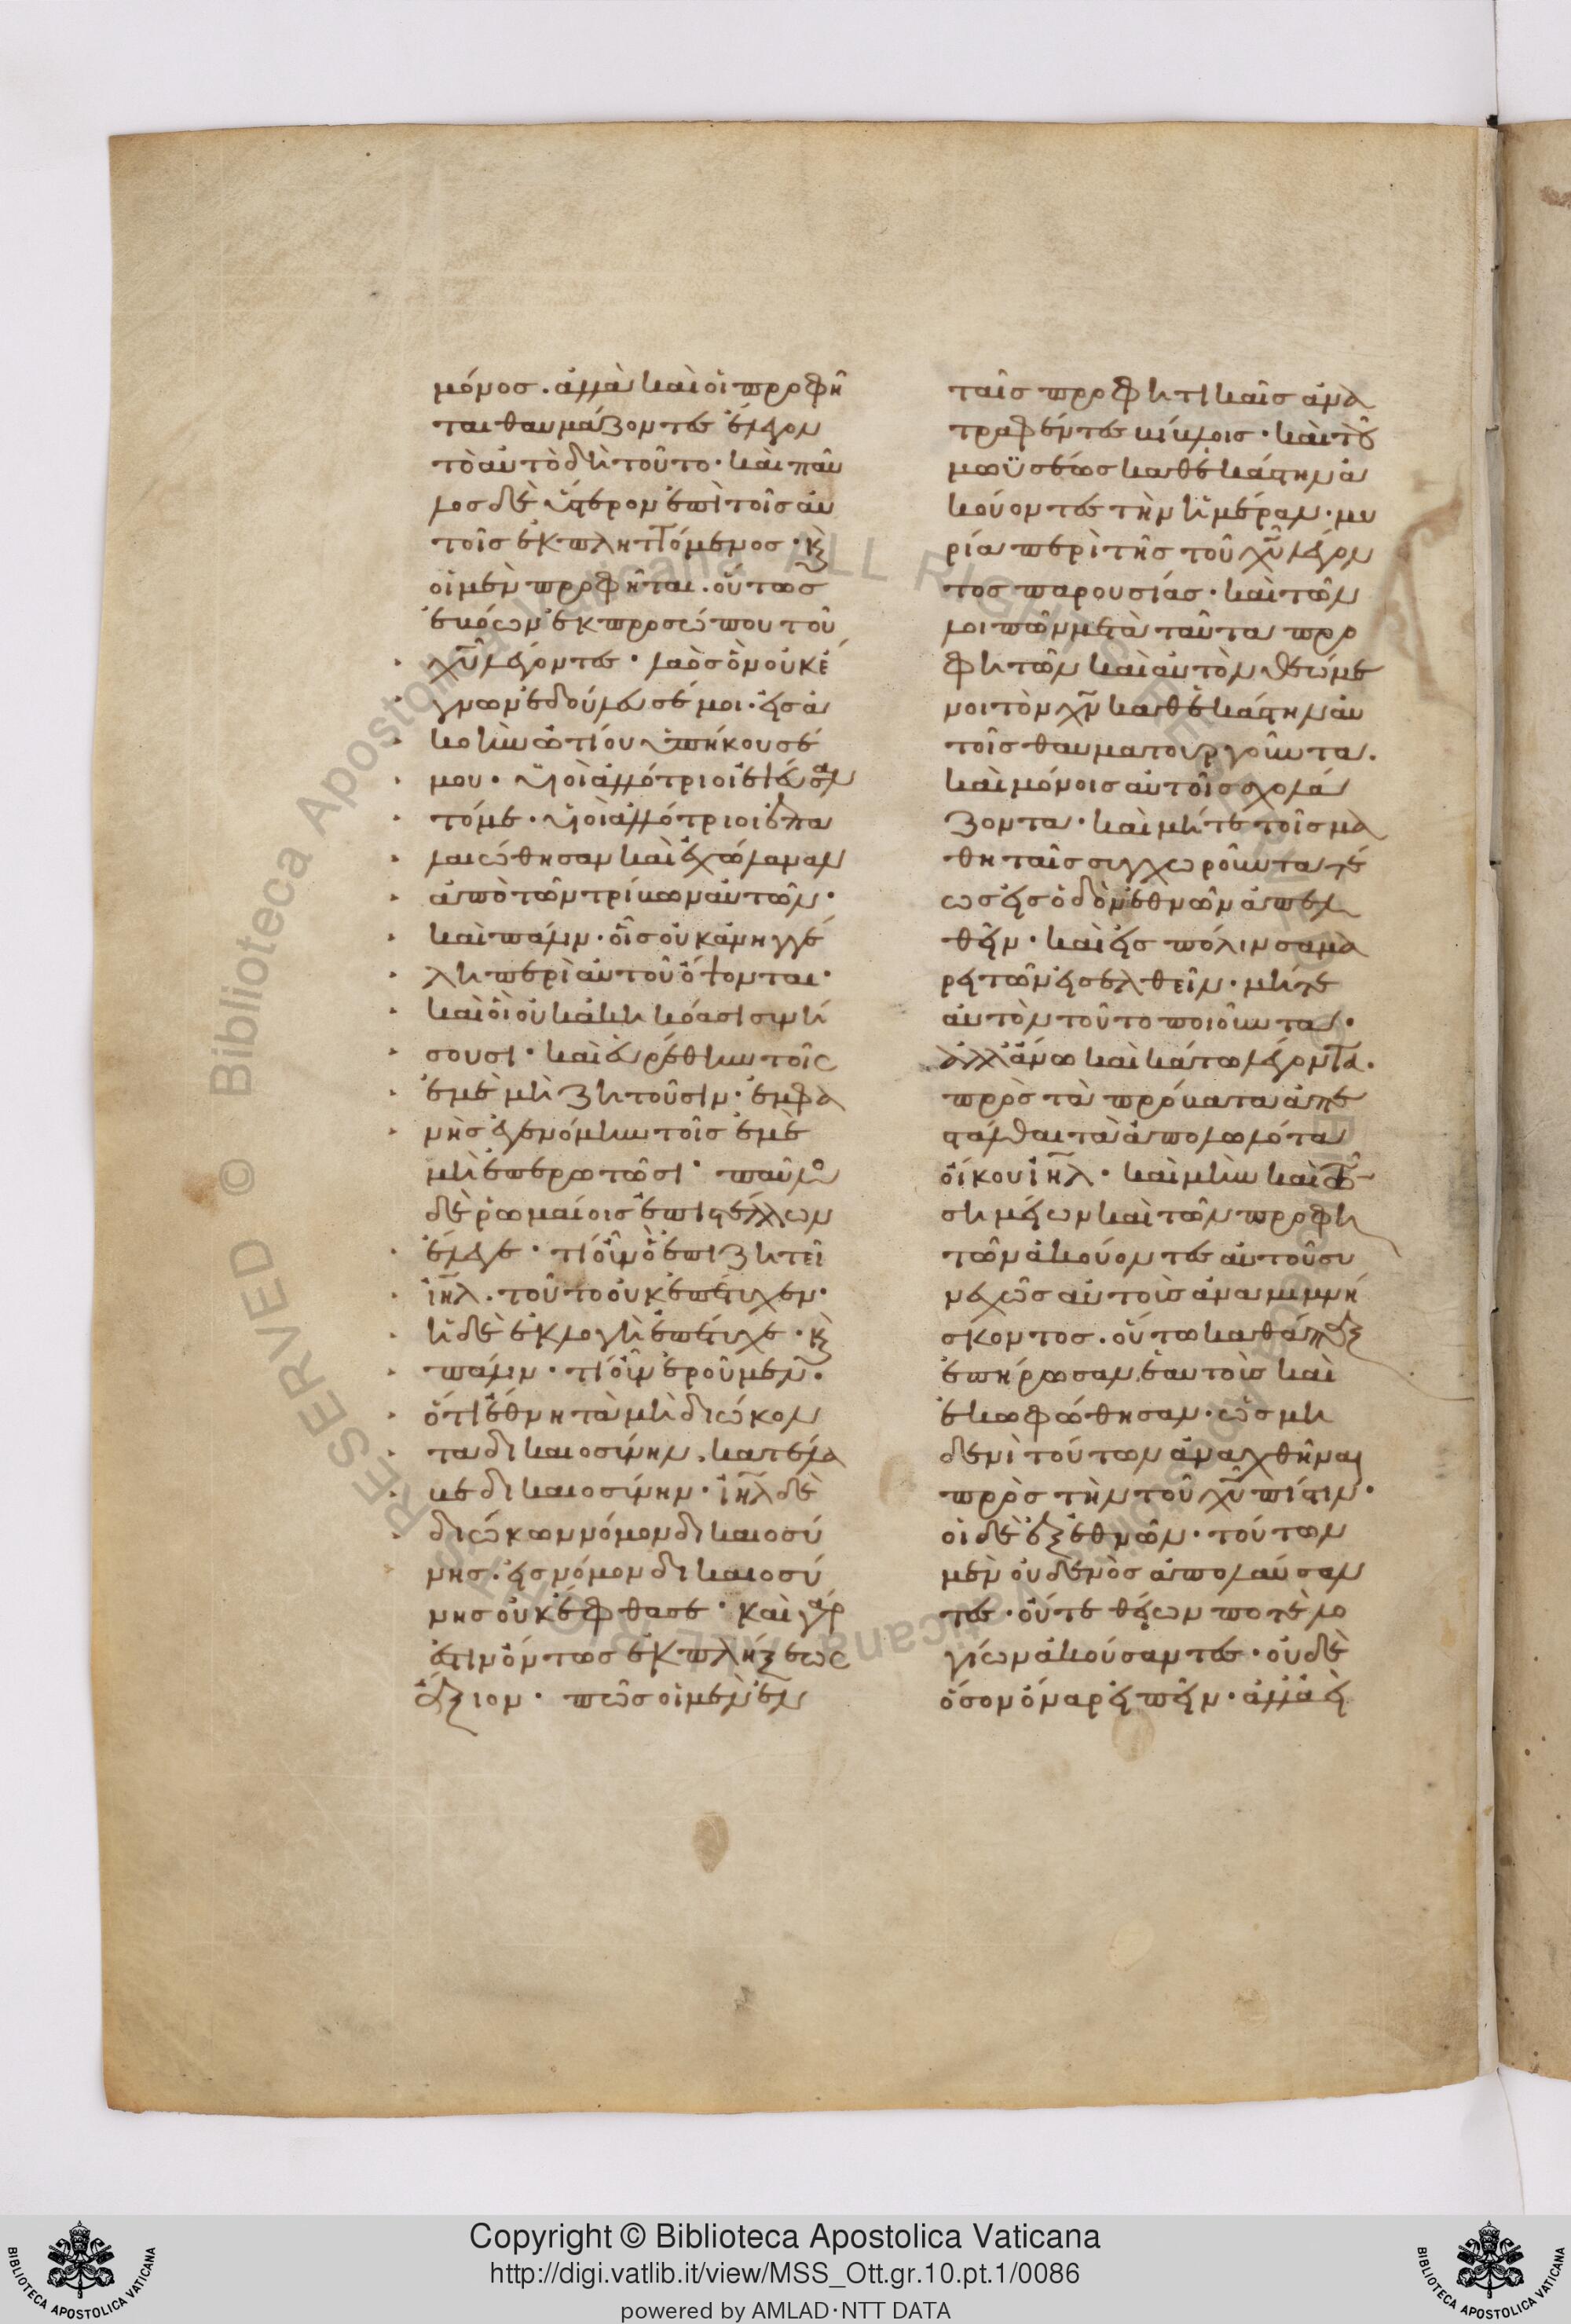 μόνος. ἀλλὰ καὶ οἱ προφῆ
ται θαυμάζοντες ἔλεγον
τὸ αὐτὸ δὴ τοῦτο· καὶ παῦ
λος δὲ ὕστερον ἐπὶ τοῖς αὐ
τοῖς ἐκπληττόμενος· κ(αὶ)
οἱ μὲν προφῆται. οὕτως
ἐβόων ἐκ προσώπου τοῦ
χῦ λέγοντες· λαὸς ὃν οὐκ ἔ
γνων ἐδούλευσέ μοι· εἰς ἀ
κοὴν ὠτίου ὑπήκουσέ
μου· υἱοὶ ἀλλότριοι ἐψεύσαν
τό με· υἱοὶ ἀλλότριοι ἐπα
λαιώθησαν καὶ ἐχώλαναν
ἀπὸ τῶν τρίβων αὐτῶν·
καὶ πάλιν· οἷς οὐκ ἀνηγγέ
λη περὶ αὐτοῦ ὄψονται·
καὶ οἳ οὐκ ἀκηκόασι συνή
σουσι· καὶ εὑρέθην τοῖς
ἐμὲ μὴ ζητοῦσιν· ἐμφα
νὴς ἐγενόμην τοῖς ἐμὲ
μὴ ἐπερωτῶσι· παῦλο(ς)
δὲ ῥωμαίοις ἐπιστέλλων
ἔλεγε· τί οὖν ὃ ἐπιζητεῖ
ἰηλ. τοῦτο οὐκ ἐπέτυχεν·
ἡ δὲ ἐκλογὴ ἐπέτυχε· κ(αὶ)
πάλιν· τί οὖν ἐροῦμεν·
ὅτι ἔθνη τὰ μὴ διώκον
τα δικαιοσύνην, κατέλα
βε δικαιοσύνην· ἰηλ δὲ
διώκων νόμον δικαιοσύ
νης· εἰς νόμον δικαιοσύ
νης οὐκ ἔφθασε· καὶ γάρ
ἐστιν ὄντως ἐκπλήξεως
ἄξιον· πῶς οἱ μὲν ἐν
ταῖς προφητικαῖς ἀνα
τραφέντες βίβλοις· καὶ τοῦ
μωϋσέως καθ' ἑκάστην ἀ
κούοντες τὴν ἡμέραν· μυ
ρία περὶ τῆς τοῦ χῦ λέγον
τος παρουσίας· καὶ τῶν
λοιπῶν μετὰ ταῦτα προ
φητῶν καὶ αὐτὸν θεώμε
νοι τὸν χν καθ' ἑκάστην αὐ
τοῖς θαυματουργοῦντα.
καὶ μόνοις αὐτοῖς σχολά
ζοντα· καὶ μήτε τοῖς μα
θηταῖς συγχωροῦντα τέ
ως εἰς ὁδὸν ἐθνῶν ἀπελ
θεῖν· καὶ εἰς πόλιν σαμα
ρειτῶν εἰσελθεῖν· μήτε
αὐτὸν τοῦτο ποιοῦντα·
ἀλλ' ἄνω καὶ κάτω λέγοντα.
πρὸς τὰ πρόβατα ἀπε
στάλθαι τὰ ἀπολωλότα
οἴκου ἰηλ· καὶ μὴν καὶ τῶ(ν)
σημείων καὶ τῶν προφη
τῶν ἀκούοντες αὐτοῦ συ
νεχῶς αὐτοὺς ἀναμιμνή
σκοντος. οὕτω καθάπαξ
ἐπήρωσαν ἑαυτοὺς καὶ
ἐκωφώθησαν· ὡς μη
δενὶ τούτων ἀναχθῆναι
πρὸς τὴν τοῦ χῦ πίστιν·
οἱ δὲ ἐξ ἐθνῶν· τούτων
μὲν οὐδενὸς ἀπολαύσαν
τες· οὔτε θείων ποτὲ λο
γίων ἀκούσαντες· οὐδὲ
ὅσον ὄναρ εἰπεῖν· ἀλλὰ ἐ
Copyright © Biblioteca Apostolica Vaticana
http://digi.vatlib.it/view/MSS_Ott.gr.10.pt.1/0086
powered by AMLAD·NTT DATA